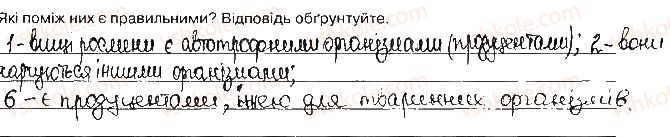 Які поміж них є правильними? Відповідь обґрунтуйте.
1 - вищі рослини є автотрофними організмами (продуцентами); 2 - вони
харчуються іншими організмами;
6 - є продуцентами, їжею для тваринних організмів.